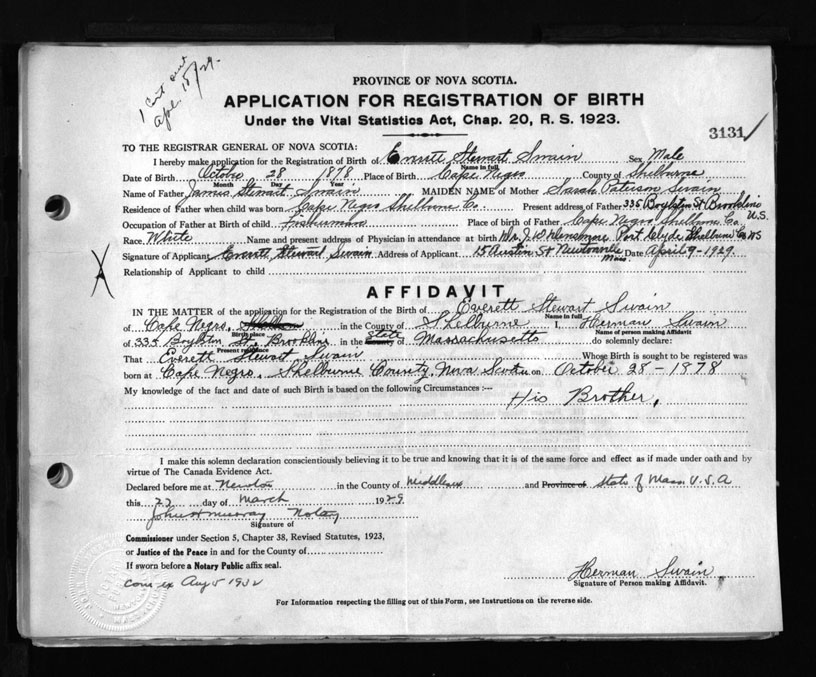 1 Cert out
Apl. 15/29.
PROVINCE OF NOVA SCOTIA.
APPLICATION FOR REGISTRATION OF BIRTH
Under the Vital Statistics Act, Chap. 20, R. S. 1923.
3131
TO THE REGISTRAR GENERAL OF NOVA SCOTIA:
I hereby make application for the Registration of Birth of Everett Stewart Swain Sex Male
Name in full
Date of Birth October 28 1878 Place of Birth Cape Negro County of Shelburne
Month Day Year
Name of Father James Stewart Swain MAIDEN NAME of Mother Sarah Paterson Swain
Residence of Father when child was born Cape Negro Shelburne Co. Present address of Father 335 Boylston St Brookline
U.S.
Occupation of Father at Birth of child Fisherman Place of birth of Father Cape Negro Shelburne Co.
Race White Name and present address of Physician in attendance at birth Dr. J. W. Densmore Port Clyde Shelburne Co NS
Signature of Applicant Everett Stewart Swain Address of Applicant 15 Austin St Newtonville Mass. Date April 9-1929.
Relationship of Applicant to child
AFFIDAVIT
IN THE MATTER of the application for the Registration of the Birth of Everett Stewart Swain
Name in full
of Cape Negro, in the County of Shelburne I, Herman Swain
Birth place Name of person making affidavit
of 335 Boylston St., Brookline in the County State of Massachusetts do solemnly declare:
Present residence
That Everett Stewart Swain Whose Birth is sought to be registered was
born at Cape Negro, Shelburne County, Nova Scotia on October 28-1878
My knowledge of the fact and date of such Birth is based on the following Circumstances :—
His Brother,
I make this solemn declaration conscientiously believing it to be true and knowing that it is of the same force and effect as if made under oath and by
virtue of The Canada Evidence Act.
Declared before me at Newton in the County of Middlesex and Province of State of Mass U.S.A
this 22 day of March 1929
John H Murray Notary
Signature of
Commissioner under Section 5, Chapter 38, Revised Statutes, 1923,
or Justice of the Peace in and for the County of
If sworn before a Notary Public affix seal.
Com ex Aug 5 1932
Herman Swain
Signature of Person making Affidavit.
For Information respecting the filling out of this Form, see Instructions on the reverse side.